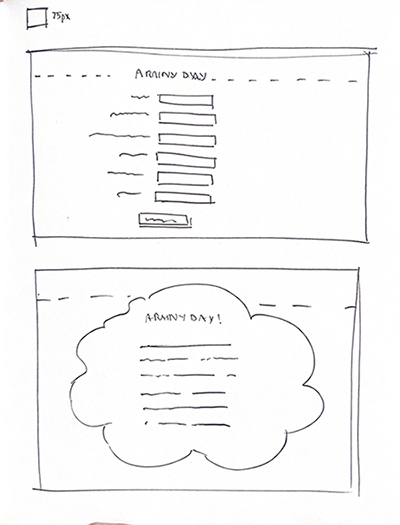 75px
A RAINY DAY
A RAINY DAY!